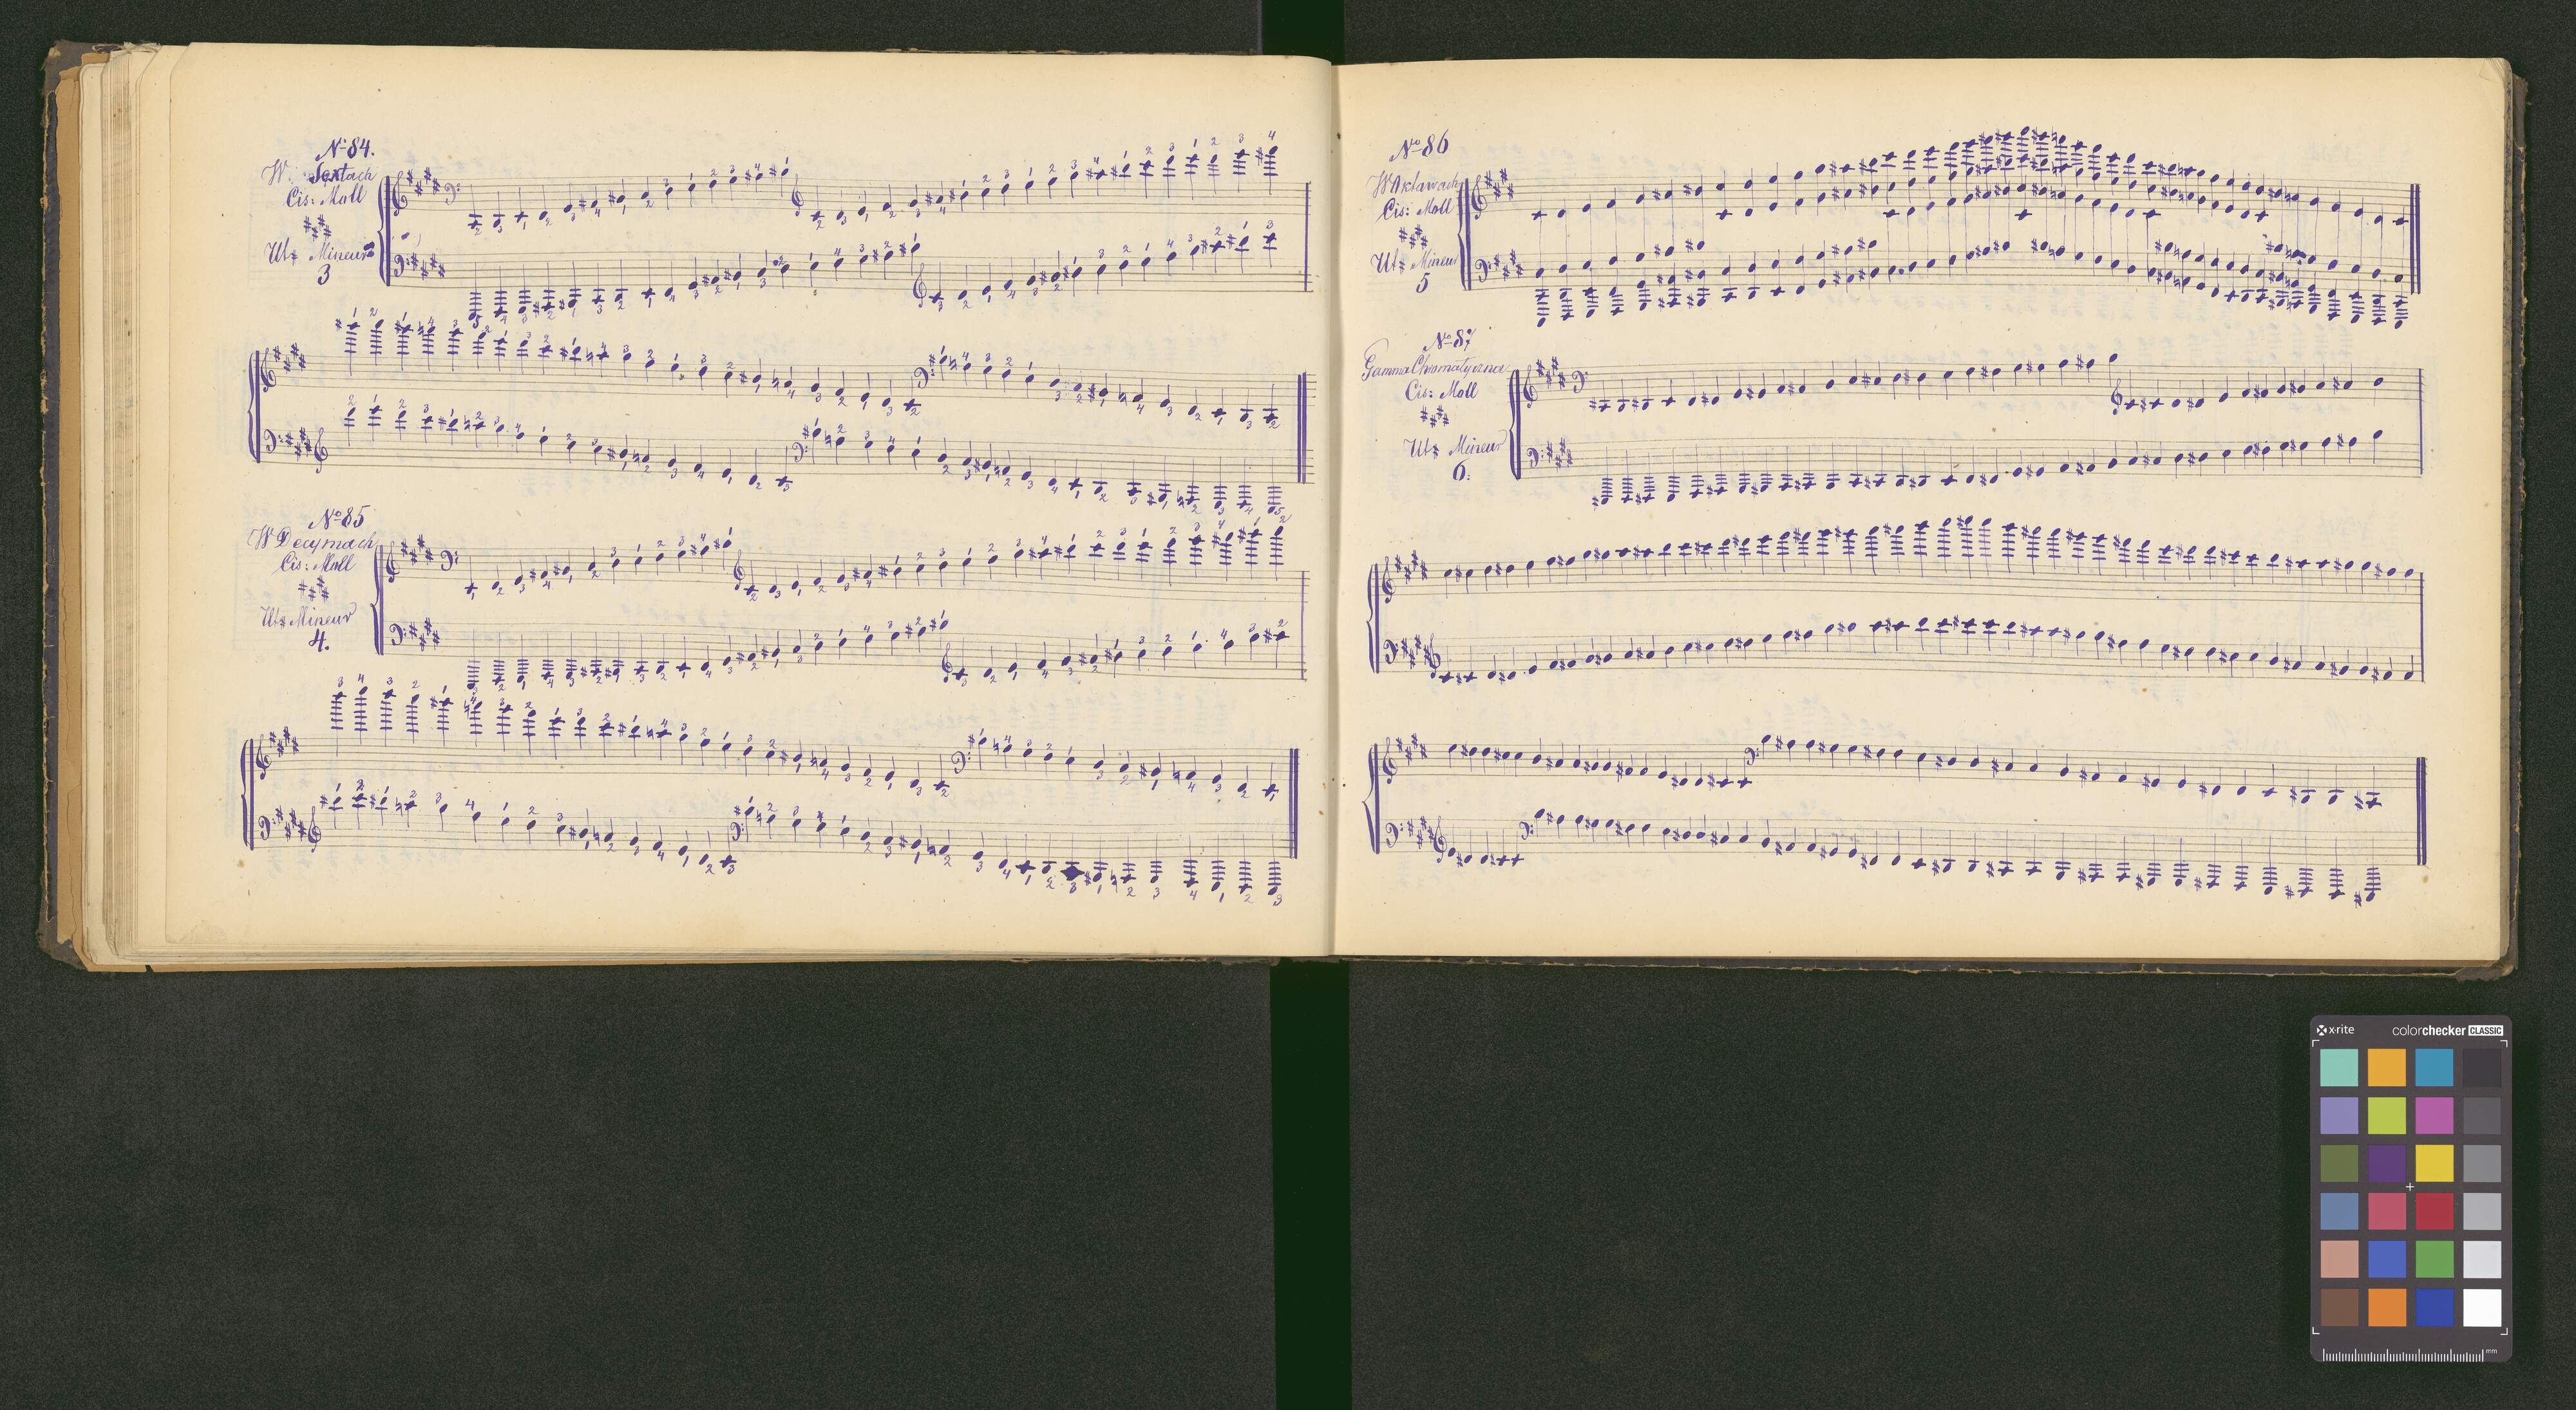 № 84.
W. Sextach
Cis: Moll
Ut♯ Mineur
3
№ 85
W Decymach
Cis: Moll
Ut♯ Mineur
4.
№ 86
W Oktawach
Cis: Moll
Ut♯ Mineur
5
№ 87
Gamma Chromatyczna
Cis: Moll
Ut♯ Mineur
6:
x-rite
colorchecker CLASSIC
mm